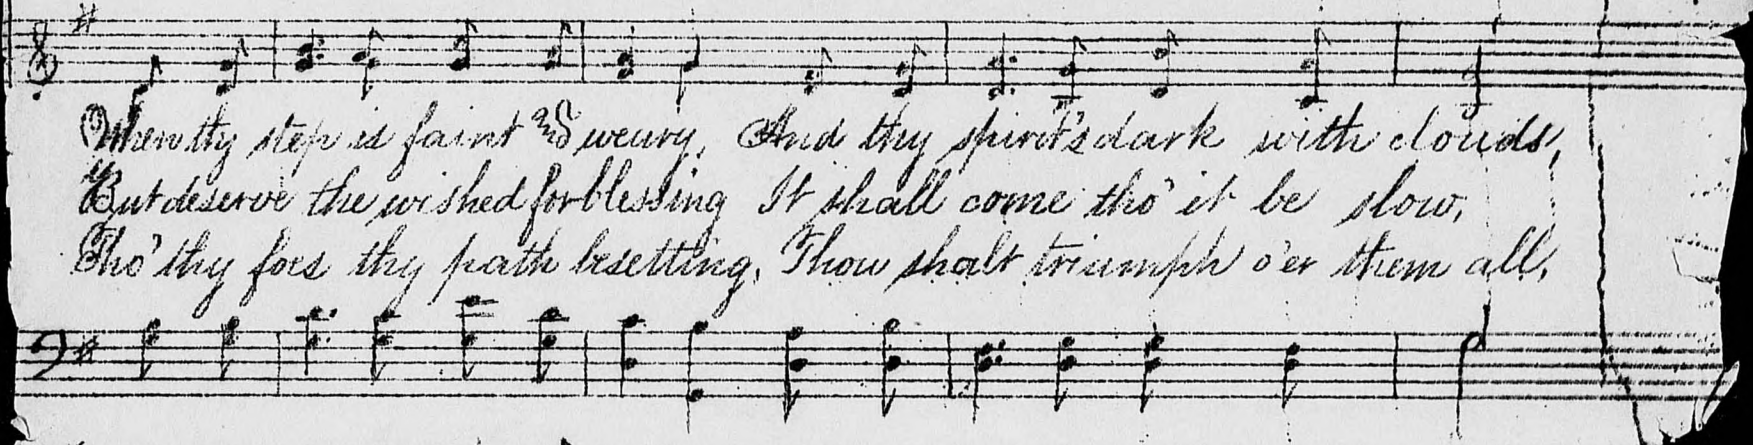 When thy step is faint and weary, And thy spirit's dark with clouds,
But deserve the wished for blessing It shall come tho' it be slow,
Tho' thy foes thy path besetting, Thou shalt triumph o'er them all,